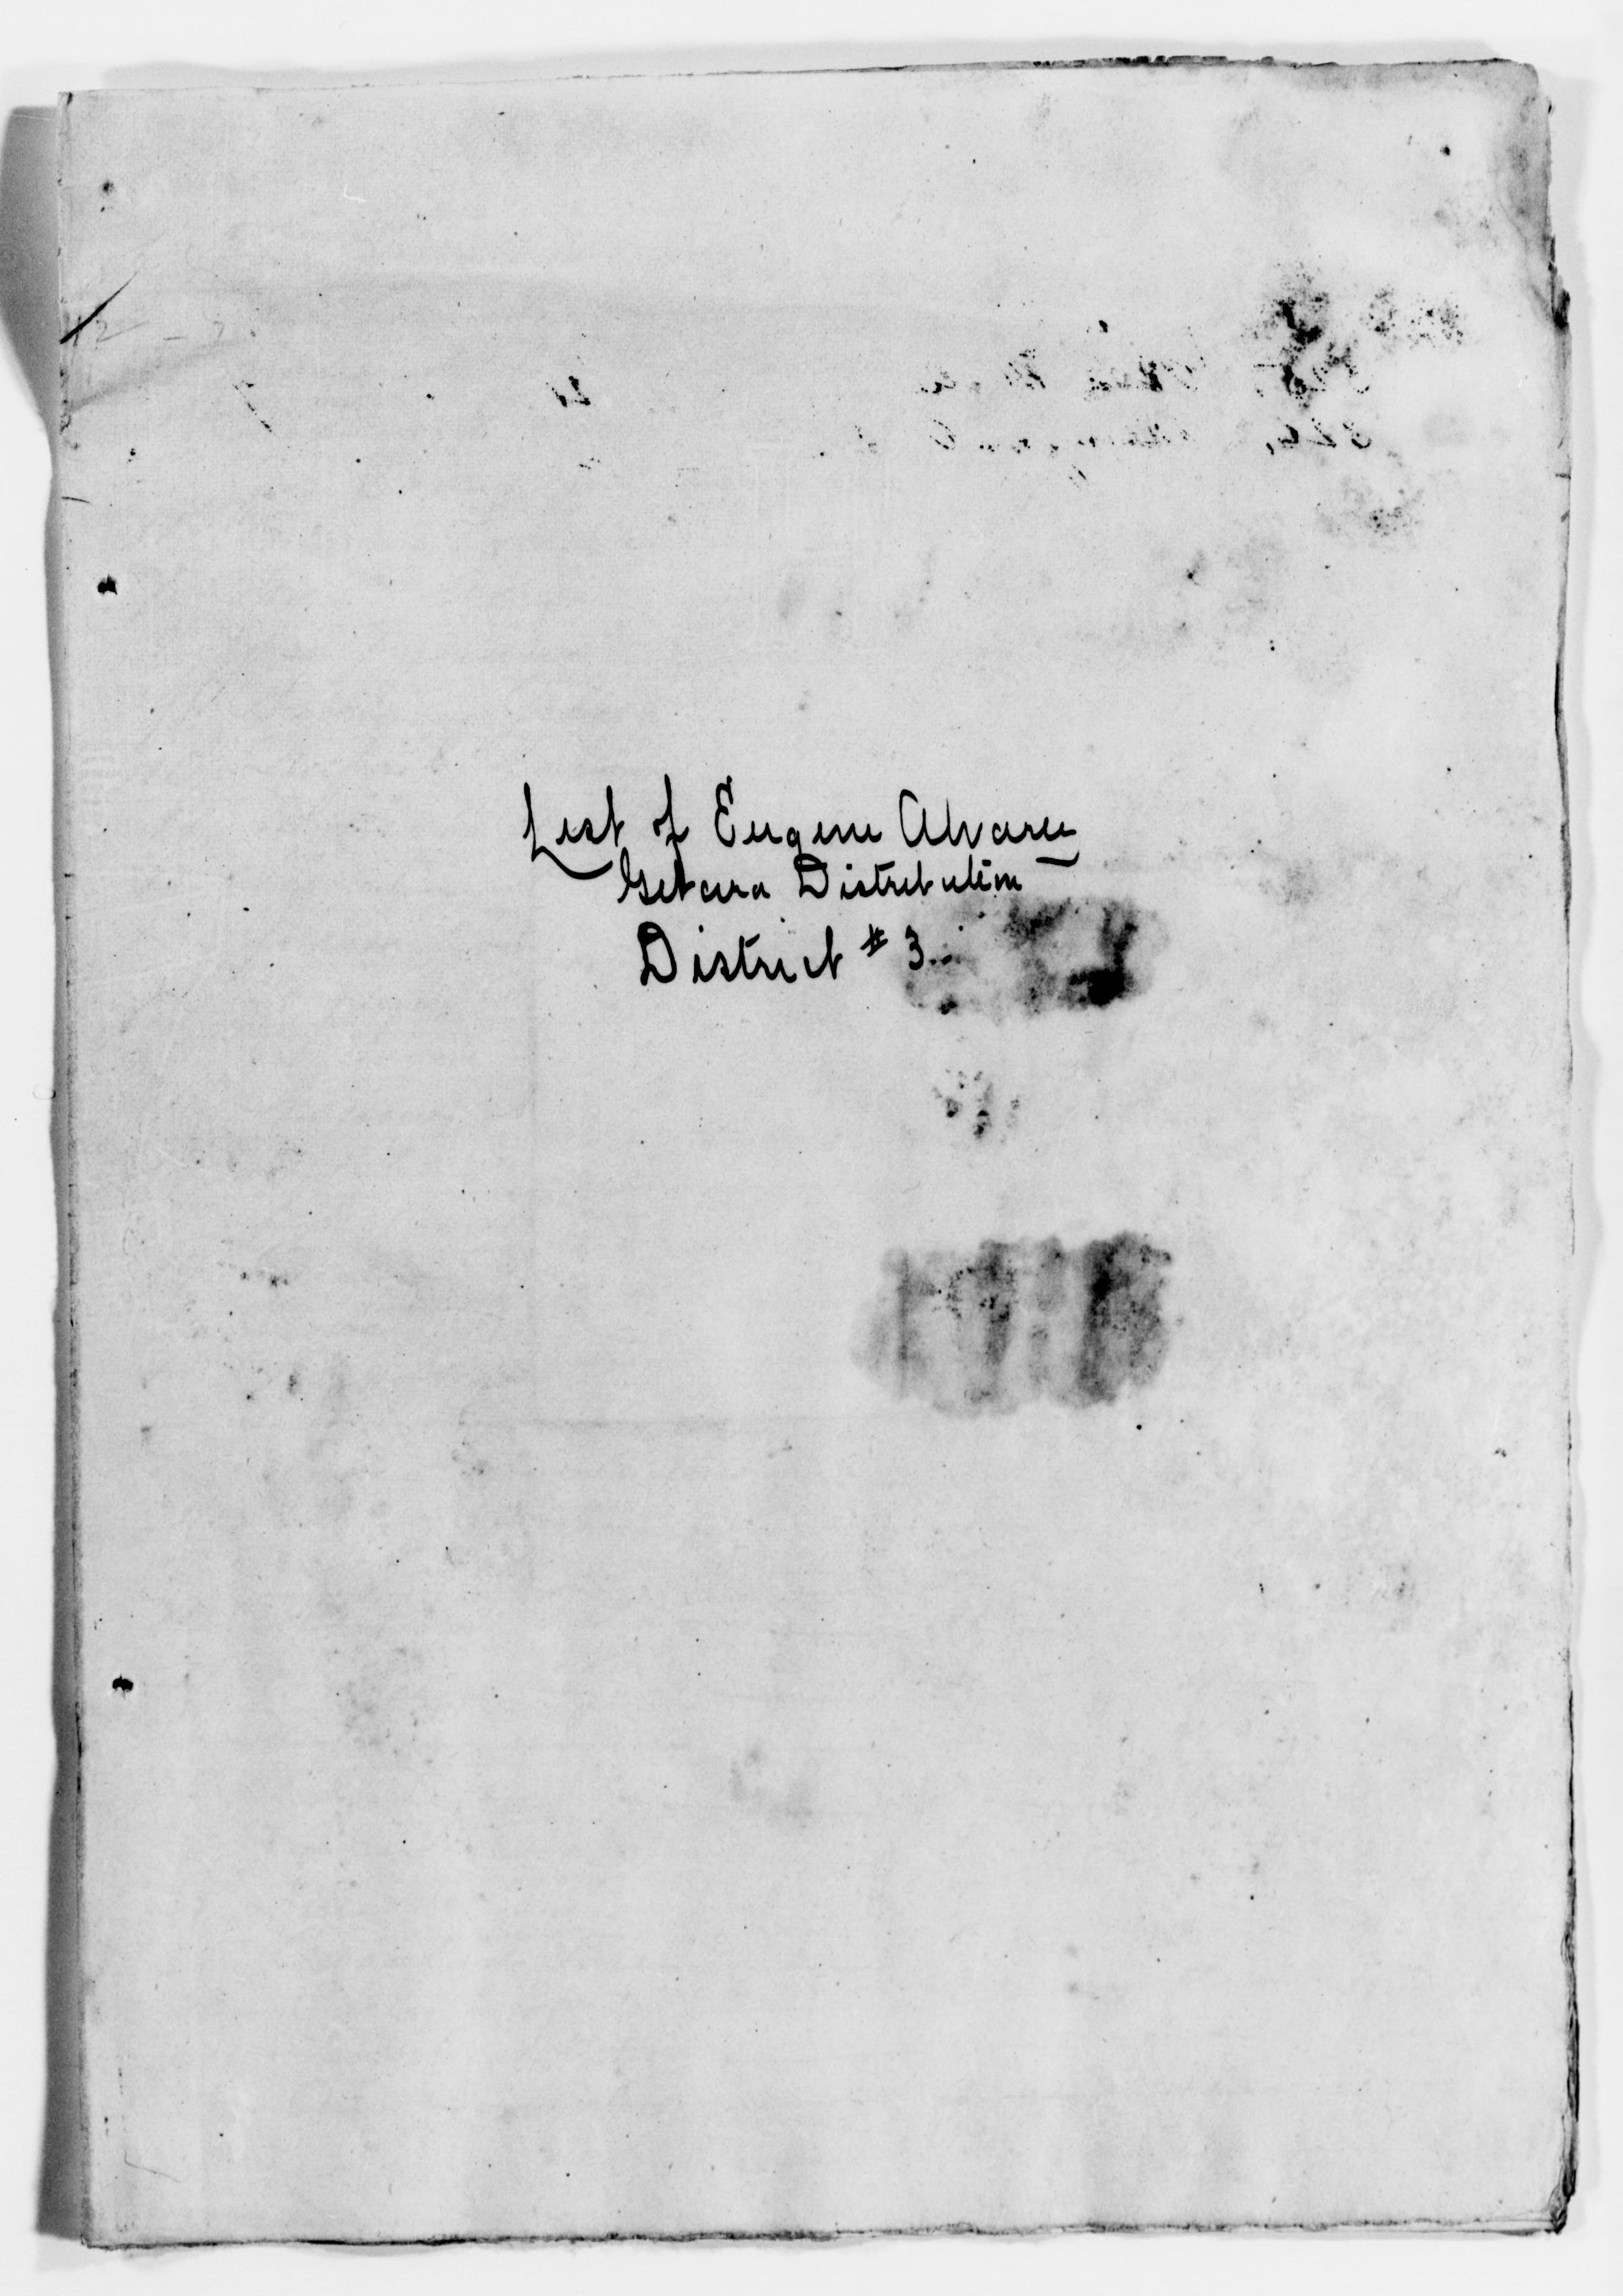 List of Eugene Alvarez
Getara Distribution
District # 3